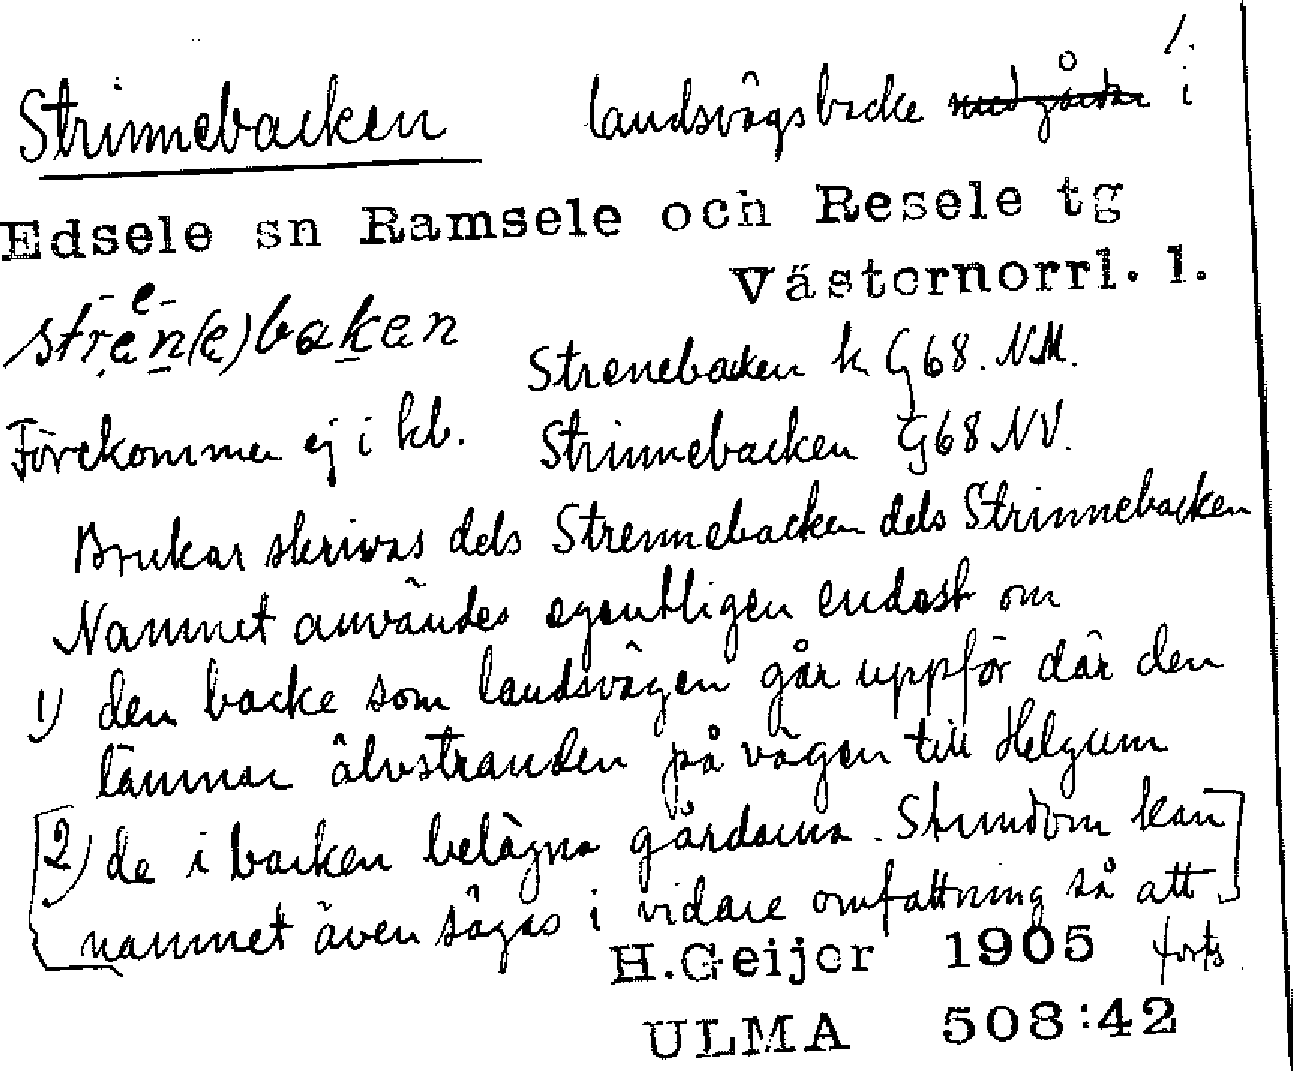 1.
Strinnebacken landsvägsbacke med gårdar i
Edsele sn Ramsele och Resele tg
Västernorrl. l.
stren(e)baken
Strenebacken k G68. NM.
Förekommer ej i kb. Strinnebacken G68 NV.
Brukar skrivas dels Strennebacken dels Strinnebacken
Namnet användes egentligen endast om
1) den backe som landsvägen går uppför där den
lämnar älvstranden på vägen till Helgum
[2) de i backen belägna gårdarna. Stundom kan
namnet även sägas i vidare omfattning så att]
H.Geijer 1905 forts.
ULMA 508:42